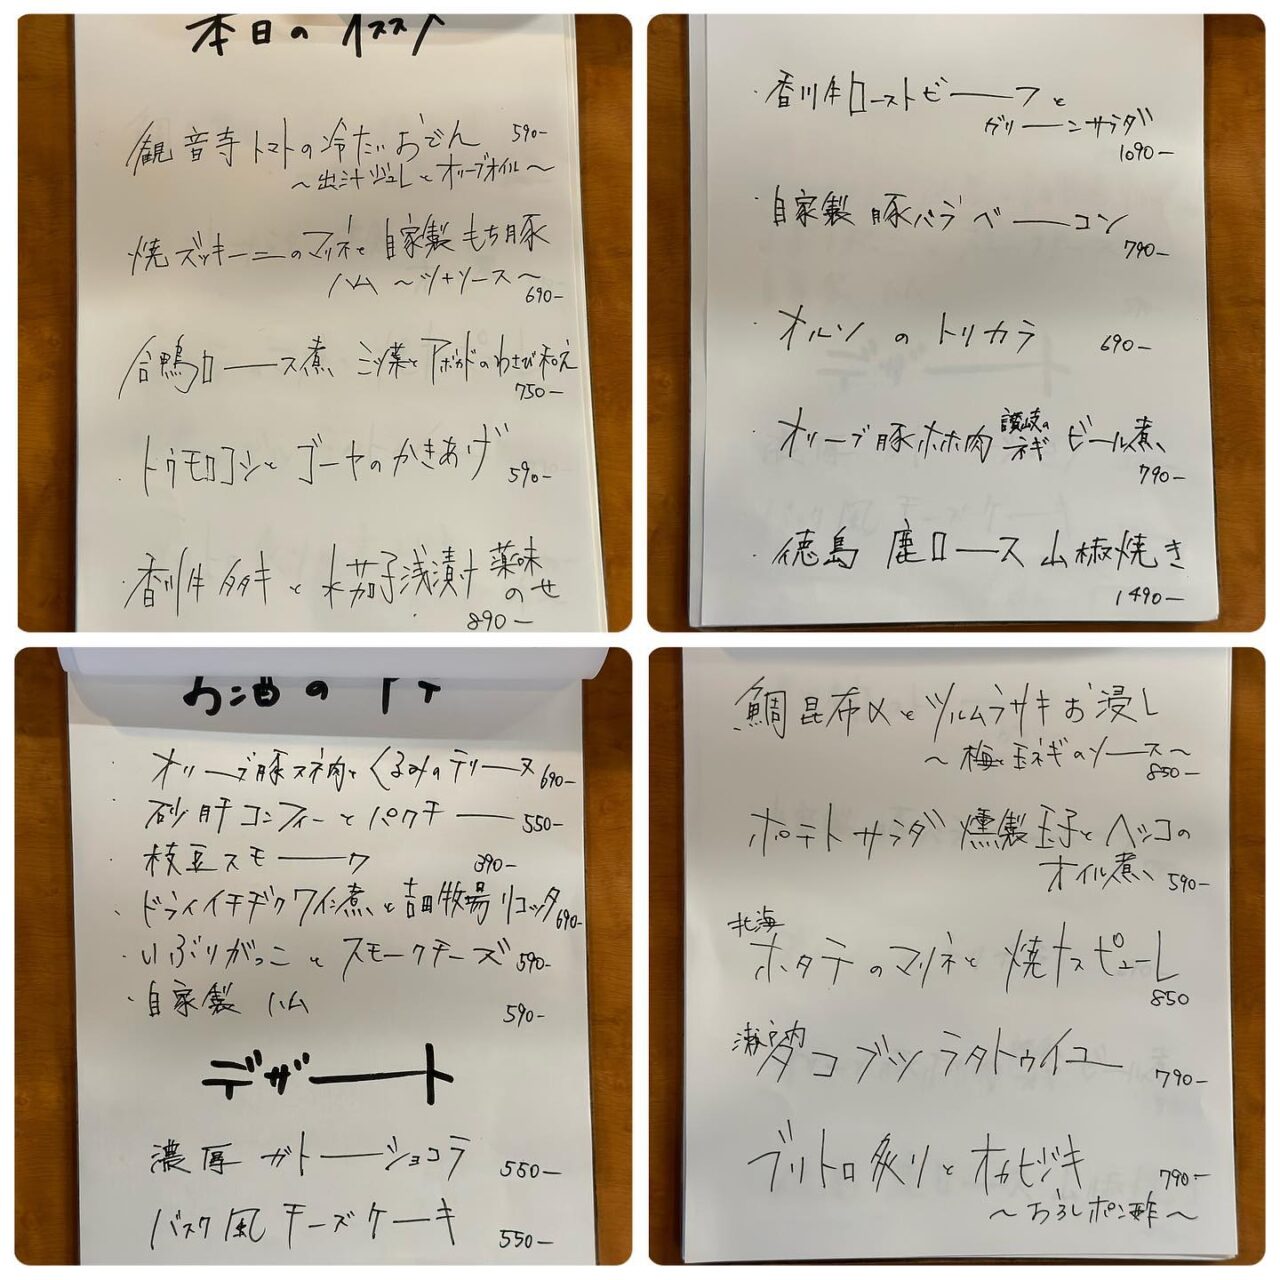 本日のオススメ
観音寺トマトの冷たいおでん 590-
〜出汁ジュレとオリーブオイル〜
焼ズッキーニのマリネと自家製もち豚
ハム 〜ツナソース〜
690-
合鴨ロース煮 三ツ葉とアボカドのわさび和え
750-
・トウモロコシとゴーヤのかきあげ 590-
・香川牛タタキと水茄子浅漬け 薬味のせ
890-
・香川牛ローストビーフと
グリーンサラダ
1090-
自家製 豚バラベーコン
790-
・オルソのトリカラ 690-
・オリーブ豚ホホ肉 讃岐のネギ ビール煮
790-
・徳島 鹿ロース 山椒焼き
1490-
お酒のアテ
・オリーブ豚スネ肉とくるみのテリーヌ 690-
・砂肝コンフィーとパクチー 550-
・枝豆スモーク 390-
・ドライイチヂクワイン煮と吉田牧場リコッタ 690-
・いぶりがっことスモークチーズ 590-
・自家製ハム 590-
デザート
濃厚ガトーショコラ 550-
バスク風チーズケーキ 550-
鯛昆布〆とツルムラサキお浸し
〜梅と玉ネギのソース〜
850-
ポテトサラダ 燻製玉子とヘシコの
オイル煮 590-
北海
ホタテのマリネと焼ナスピューレ
850
瀬戸内
タコブツラタトゥイユ 790-
ブリトロ炙りとオカヒジキ 790-
〜おろしポン酢〜